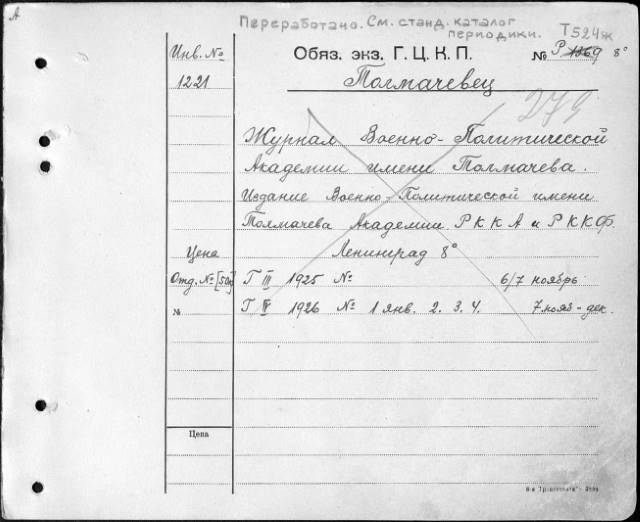 А
Переработано. См. станд. каталог
периодики.
Т524ж
Инв. №
Обяз. экз. Г.Ц.К.П.
№ Р 1369 8°
1221
Толмачевец
279
Журнал Военно-Политической
Академии имени Толмачева.
Издание Военно-Политической имени
Толмачева Академии РККА и РККФ.
Цена
Ленинград 8°
Отд. № [50к]
Г III 1925 №
6/7 ноябрь
№
Г IV 1926 № 1 янв. 2. 3. 4.
7 нояб - дек.
Цена